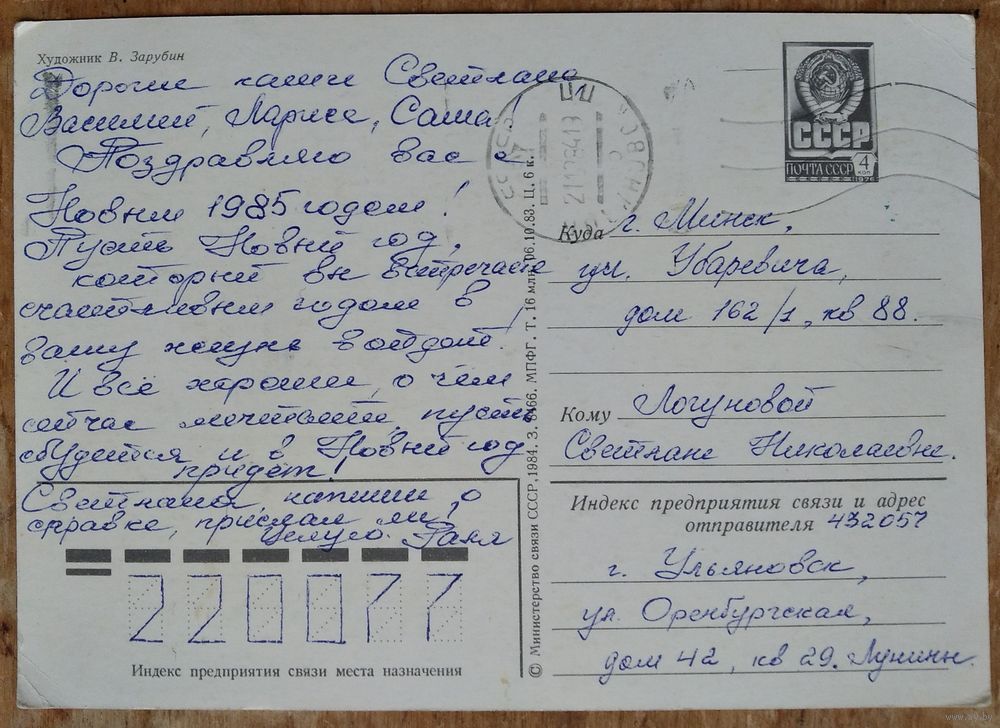 Художник В. Зарубин
Дорогие наши Светлана
Василий, Лариса, Саша!
Поздравляю вас с
Новым 1985 годом!
Пусть Новый год,
который вы встречаете
счастливым годом в
вашу жизнь войдёт!
И всё хорошее, о чём
сейчас мечтаете, пусть
сбудется и в Новый год
придёт!
Светлана, напиши о
справке, прислал ли?
Целую. Галя
Индекс предприятия связи места назначения
220077
© Министерство связи СССР, 1984. З. 8466. МПФГ. Т. 16 млн. 06.10.83. Ц. 6 к.
СССР
ПОЧТА СССР
4
коп
1976
Куда г. Минск,
ул. Убаревича,
дом 162/1, кв 88.
Кому Логуновой
Светлане Николаевне.
Индекс предприятия связи и адрес
отправителя 432057
г. Ульяновск,
ул. Оренбургская,
дом 42, кв 29. Лунины.